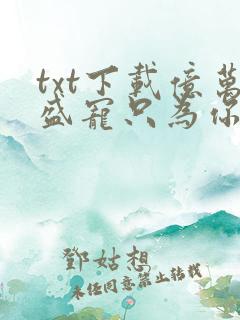 txt下載億萬
盛寵只為你
鄧姑想
未经同意禁止转载